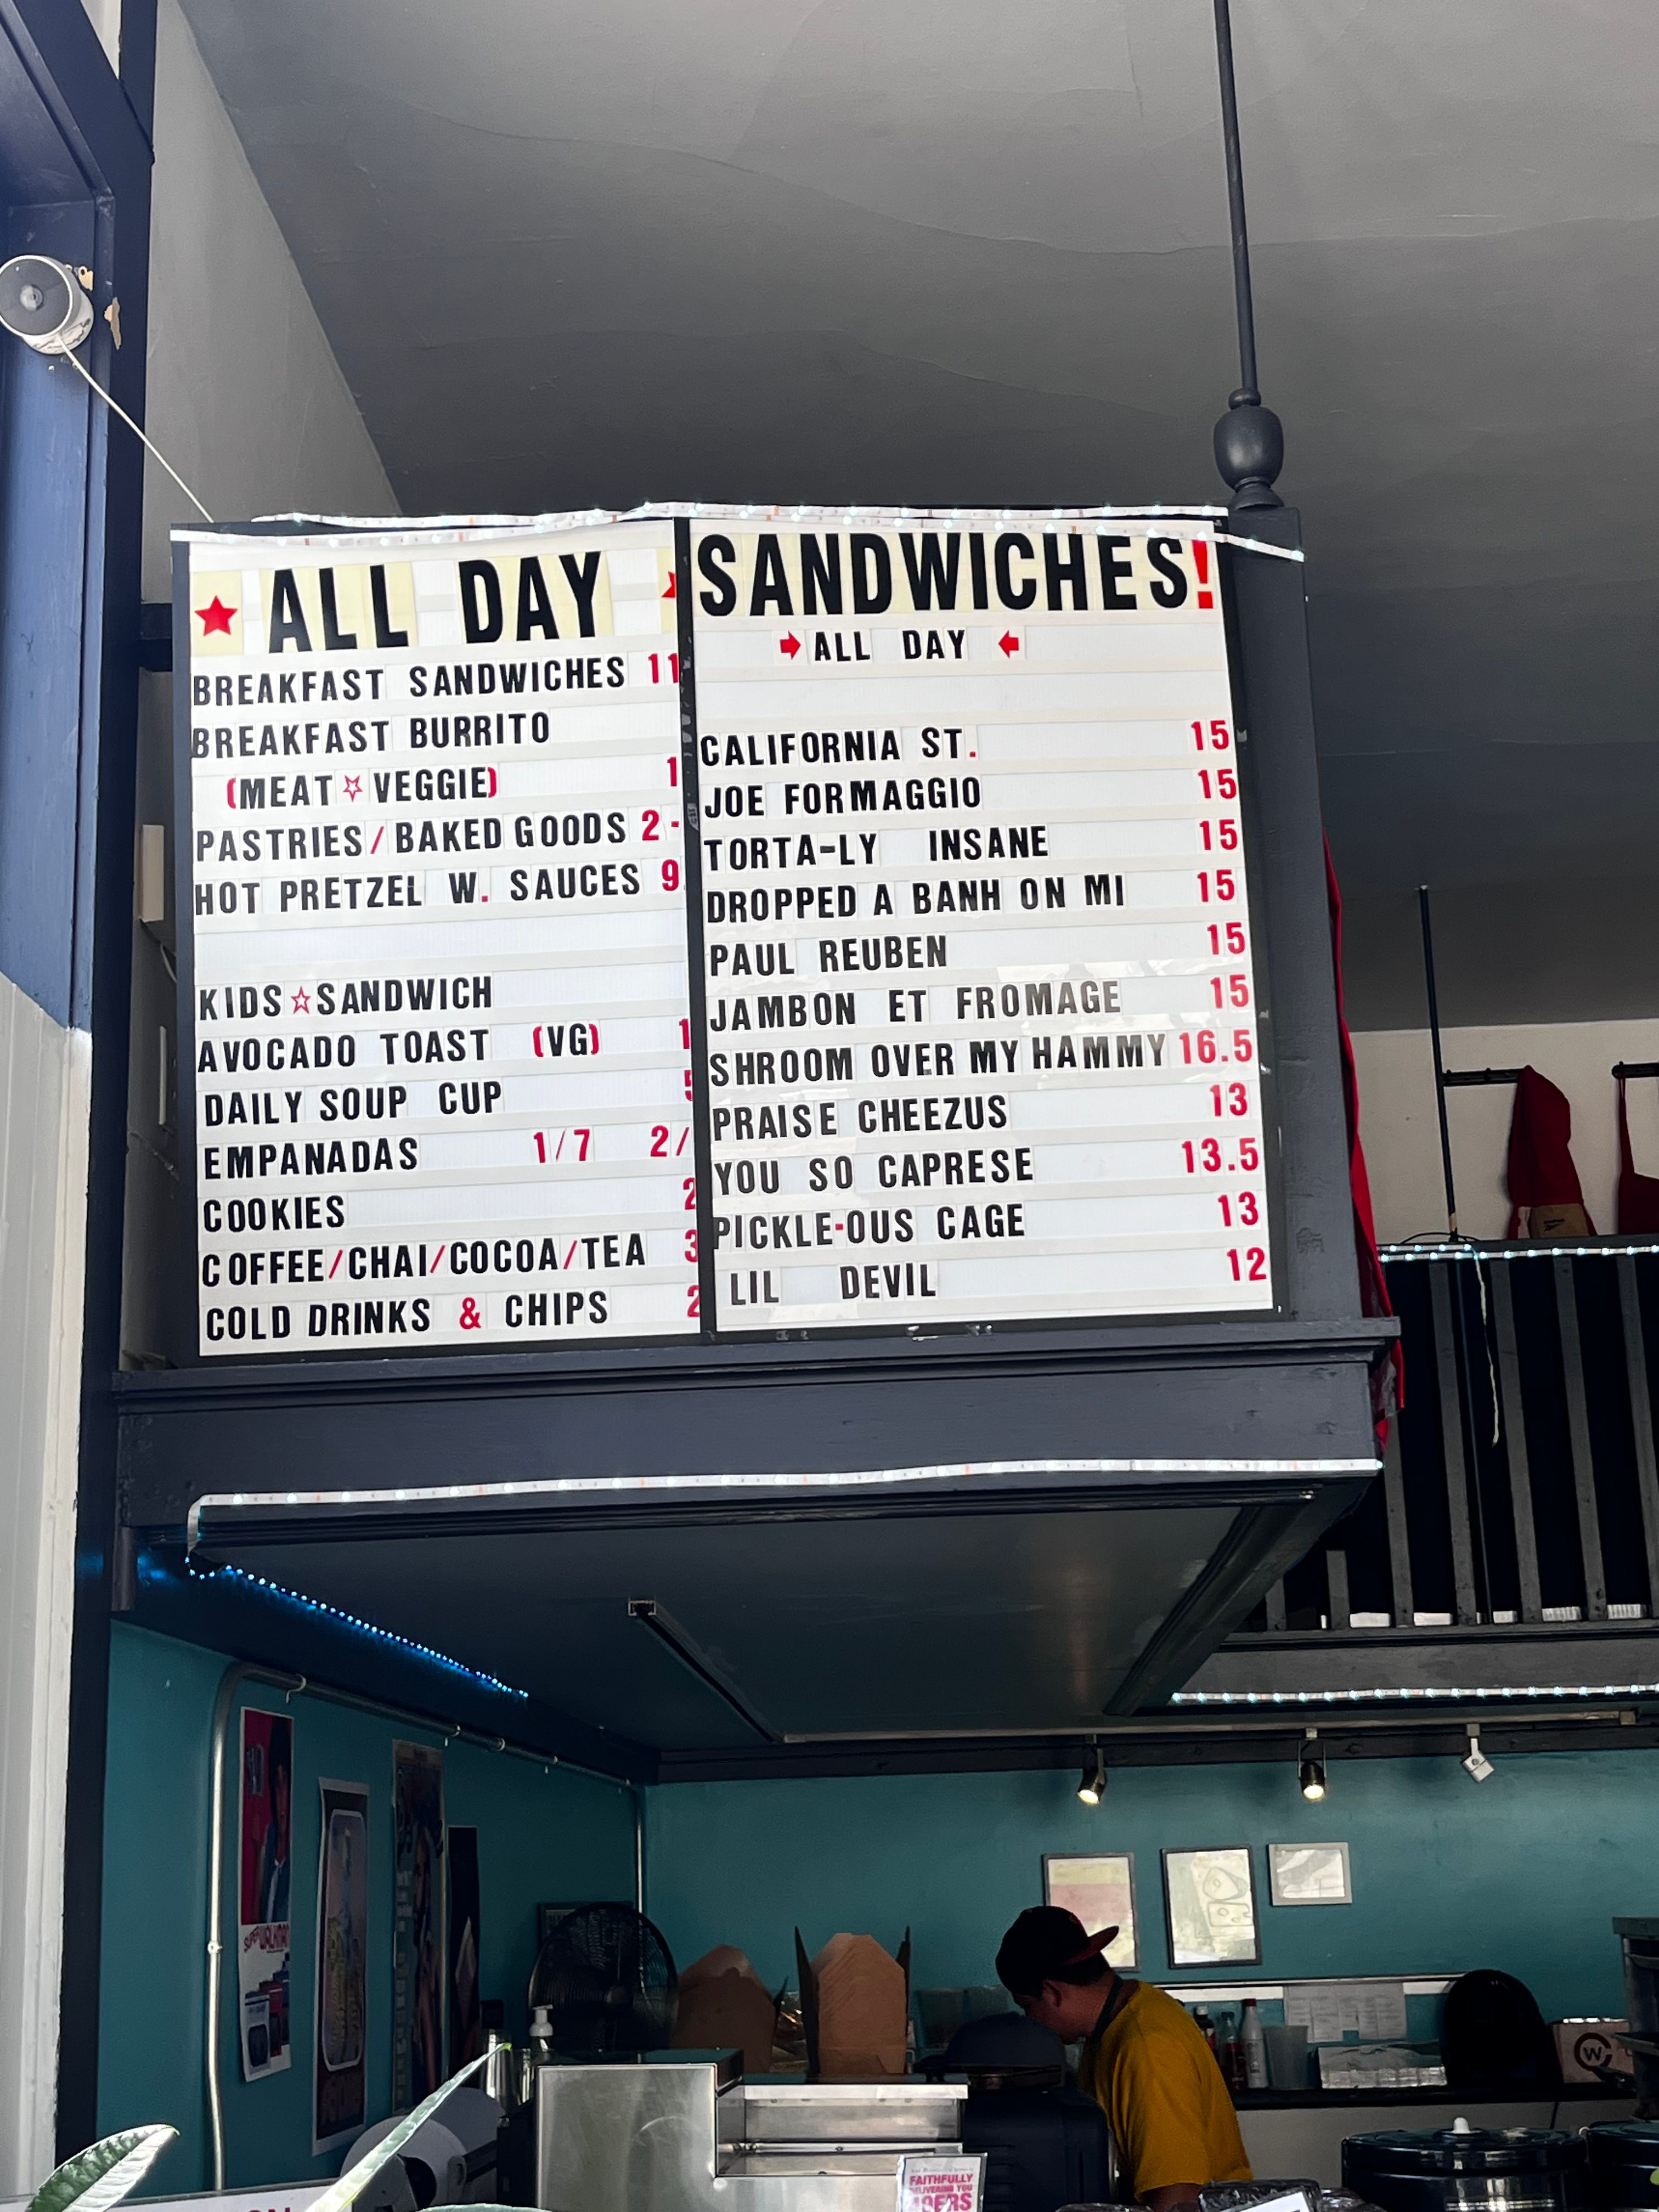 ★ ALL DAY
BREAKFAST SANDWICHES 11
BREAKFAST BURRITO
(MEAT☆VEGGIE) 1
PASTRIES/BAKED GOODS 2-
HOT PRETZEL W. SAUCES 9
KIDS☆SANDWICH
AVOCADO TOAST (VG) 1
DAILY SOUP CUP 5
EMPANADAS 1/7 2/
COOKIES 2
COFFEE/CHAI/COCOA/TEA 3
COLD DRINKS & CHIPS 2
SANDWICHES!
➡ALL DAY⬅
CALIFORNIA ST. 15
JOE FORMAGGIO 15
TORTA-LY INSANE 15
DROPPED A BANH ON MI 15
PAUL REUBEN 15
JAMBON ET FROMAGE 15
SHROOM OVER MY HAMMY 16.5
PRAISE CHEEZUS 13
YOU SO CAPRESE 13.5
PICKLE-OUS CAGE 13
LIL DEVIL 12
FAITHFULLY
DELIVERING YOU
49ERS